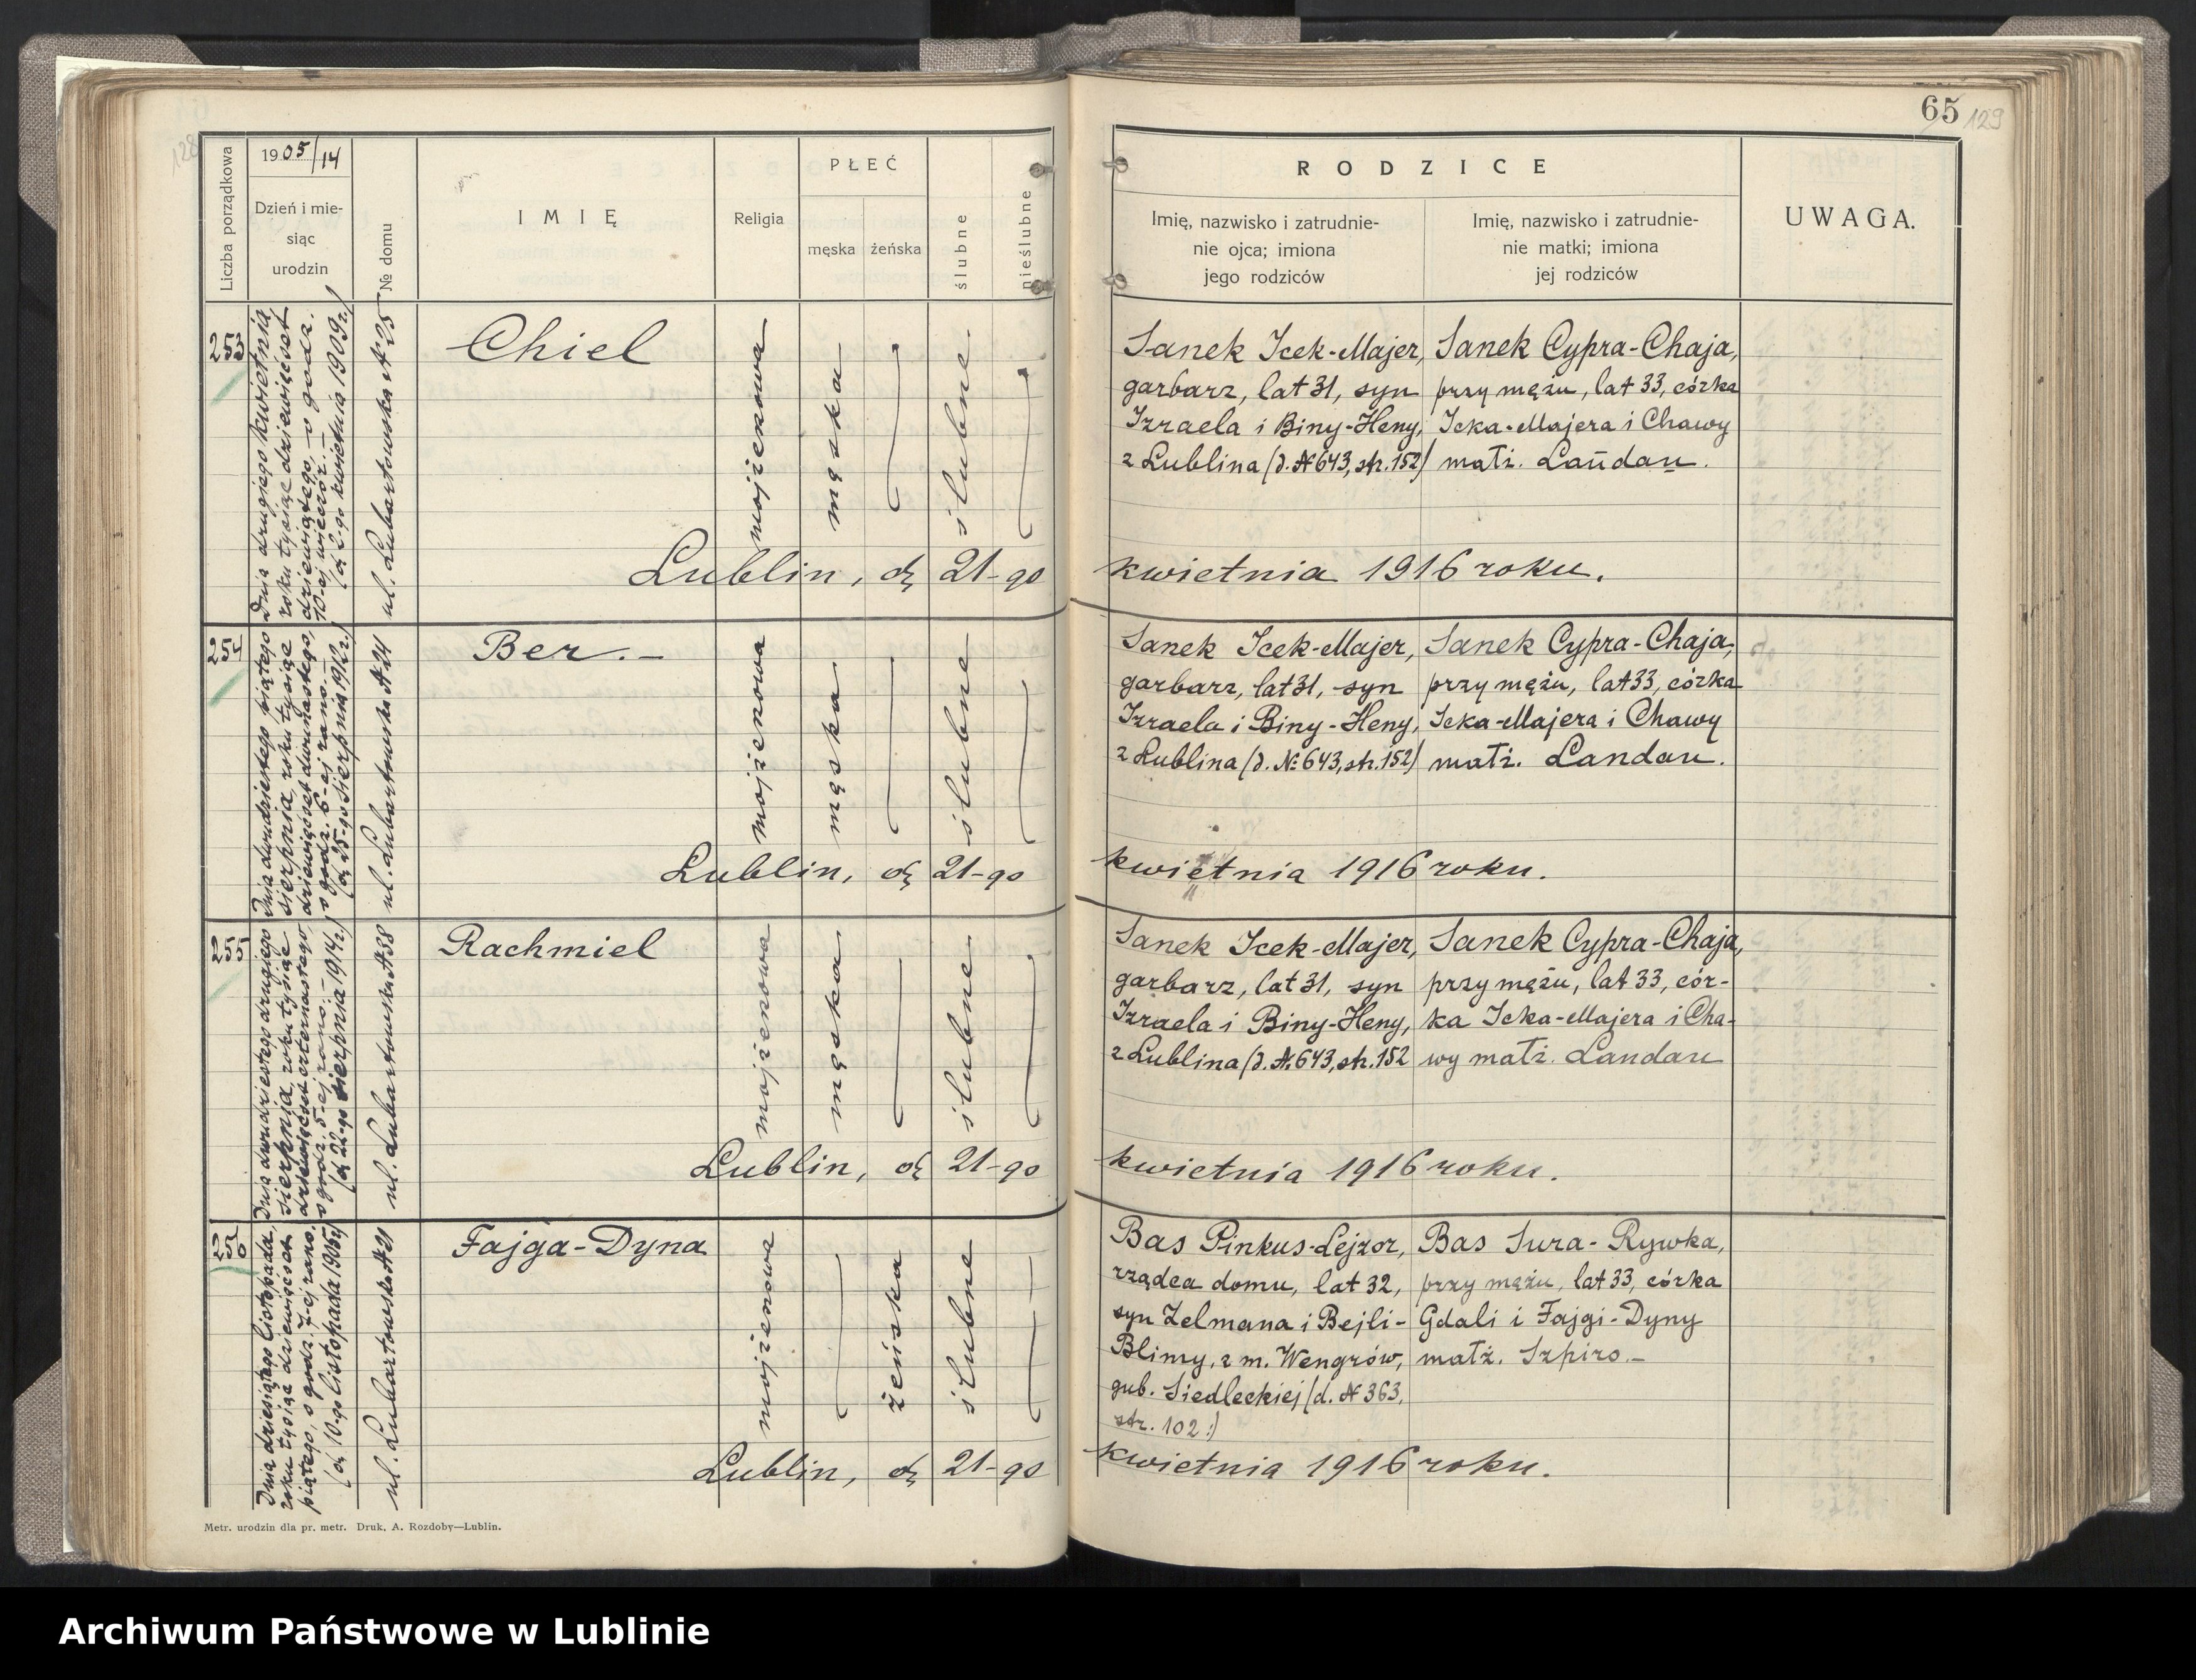 65
129
128
Liczba porządkowa
1905/14
Dzień i mie-
siąc
urodzin
№ domu
IMIĘ
Religia
PŁEĆ
męska
żeńska
ślubne
nieślubne
RODZICE
Imię, nazwisko i zatrudnie-
nie ojca; imiona
jego rodziców
Imię, nazwisko i zatrudnie-
nie matki; imiona
jej rodziców
UWAGA.
253
Dnia drugiego kwietnia
roku tysiąc dziewięćset
dziewiątego, o godz.
10-ej wieczór.—
(d. 2-go kwietnia 1909 r.)
ul. Lubartowska № 25
Chiel
mojżeszowa
męska
ślubne
Sanek Icek-Majer,
garbarz, lat 31, syn
Izraela i Biny-Heny,
z Lublina (d. № 643, str. 152)
Sanek Cypra-Chaja,
przy mężu, lat 33, córka
Icka-Majera i Chawy
małż. Landau.
Lublin, d. 21-go kwietnia 1916 roku.
254
Dnia dwudziestego piątego
sierpnia, roku tysiąc
dziewięćset dwunastego,
o godz. 6-ej rano.—
(d. 25-go sierpnia 1912 r.)
ul. Lubartowska № 21
Ber.—
mojżeszowa
męska
ślubne
Sanek Icek-Majer,
garbarz, lat 31, syn
Izraela i Biny-Heny,
z Lublina (d. № 643, str. 152)
Sanek Cypra-Chaja,
przy mężu, lat 33, córka
Icka-Majera i Chawy
małż. Landau.
Lublin, d. 21-go kwietnia 1916 roku.
255
Dnia dwudziestego drugiego
sierpnia, roku tysiąc
dziewięćset czternastego,
o godz. 5-ej rano.—
(d. 22-go sierpnia 1914 r.)
ul. Lubartowska № 38
Rachmiel
mojżeszowa
męska
ślubne
Sanek Icek-Majer,
garbarz, lat 31, syn
Izraela i Biny-Heny,
z Lublina (d. № 643, str. 152
Sanek Cypra-Chaja,
przy mężu, lat 33, cór-
ka Icka-Majera i Cha-
wy małż. Landau
Lublin, d. 21-go kwietnia 1916 roku.
256
Dnia dziesiątego listopada,
roku tysiąc dziewięćset
piątego, o godz. 7-ej rano.
(d. 10-go listopada 1905 r.)
ul. Lubartowska № 21
Fajga-Dyna
mojżeszowa
żeńska
ślubne
Bas Pinkus-Lejzor,
rządca domu, lat 32,
syn Zelmana i Bejli-
Blimy, z m. Wengrów,
gub. Siedleckiej (d. № 363,
str. 102:)
Bas Sura-Rywka,
przy mężu, lat 33, córka
Gdali i Fajgi-Dyny
małż. Szpiro.—
Lublin, d. 21-go kwietnia 1916 roku.
Metr. urodzin dla pr. metr. Druk. A. Rozdoby—Lublin.
Archiwum Państwowe w Lublinie